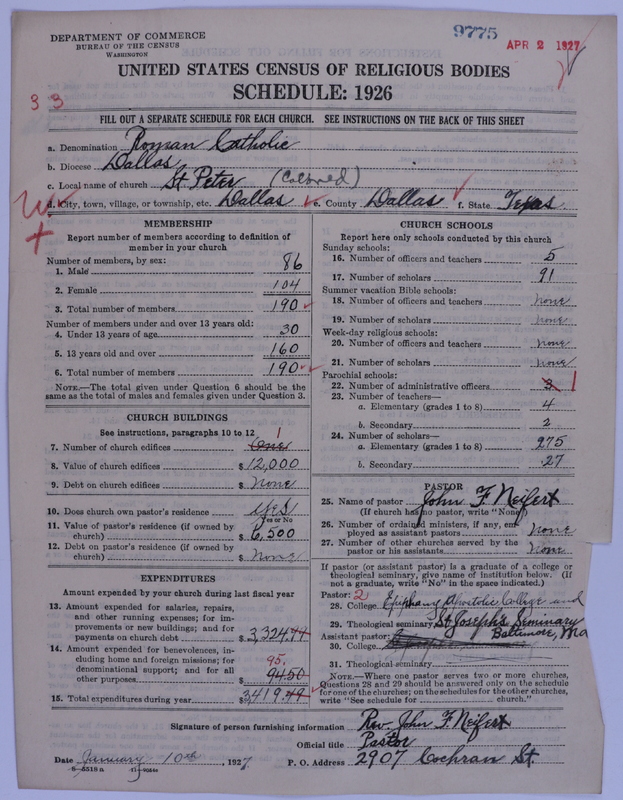 DEPARTMENT OF COMMERCE
BUREAU OF THE CENSUS
WASHINGTON
9775
APR 2 1927
UNITED STATES CENSUS OF RELIGIOUS BODIES
SCHEDULE: 1926
33
FILL OUT A SEPARATE SCHEDULE FOR EACH CHURCH. SEE INSTRUCTIONS ON THE BACK OF THIS SHEET
a. Denomination Roman Catholic
b. Diocese Dallas
c. Local name of church St Peter (Colored)
d. City, town, village, or township, etc. Dallas e. County Dallas f. State Texas
MEMBERSHIP
Report number of members according to definition of
member in your church
Number of members, by sex:
1. Male 86
2. Female 104
3. Total number of members 190
Number of members under and over 13 years old:
4. Under 13 years of age 30
5. 13 years old and over 160
6. Total number of members 190
NOTE.—The total given under Question 6 should be the
same as the total of males and females given under Question 3.
CHURCH BUILDINGS
See instructions, paragraphs 10 to 12
7. Number of church edifices One 1
8. Value of church edifices $ 12,000
9. Debt on church edifices $ None
10. Does church own pastor's residence Yes
Yes or No
11. Value of pastor's residence (if owned by
church) $ 6,500
12. Debt on pastor's residence (if owned by
church) $ None
EXPENDITURES
Amount expended by your church during last fiscal year
13. Amount expended for salaries, repairs,
and other running expenses; for im-
provements or new buildings; and for
payments on church debt $ 3,324.44
14. Amount expended for benevolences, in-
cluding home and foreign missions; for
denominational support; and for all
other purposes 95. $ 94.50
15. Total expenditures during year $ 3,419.49
CHURCH SCHOOLS
Report here only schools conducted by this church
Sunday schools:
16. Number of officers and teachers 5
17. Number of scholars 91
Summer vacation Bible schools:
18. Number of officers and teachers None
19. Number of scholars None
Week-day religious schools:
20. Number of officers and teachers None
21. Number of scholars None
Parochial schools:
22. Number of administrative officers 3 1
23. Number of teachers—
a. Elementary (grades 1 to 8) 4
b. Secondary 2
24. Number of scholars—
a. Elementary (grades 1 to 8) 275
b. Secondary 27
PASTOR
25. Name of pastor John F. Neifert
(If church has no pastor, write "None")
26. Number of ordained ministers, if any, em-
ployed as assistant pastors None
27. Number of other churches served by the
pastor or his assistants None
If pastor (or assistant pastor) is a graduate of a college or
theological seminary, give name of institution below. (If
not a graduate, write "No" in the space indicated.)
Pastor: 2
28. College Epiphany Apostolic College and
29. Theological seminary St Joseph's Seminary
Assistant pastor: Baltimore, Md
30. College
31. Theological seminary
NOTE.—Where one pastor serves two or more churches,
Questions 28 and 29 should be answered only on the schedule
for one of the churches; on the schedules for the other churches,
write "See schedule for church."
Signature of person furnishing information Rev. John F. Neifert
Official title Pastor
Date January 10th, 1927 P. O. Address 2907 Cochran St.